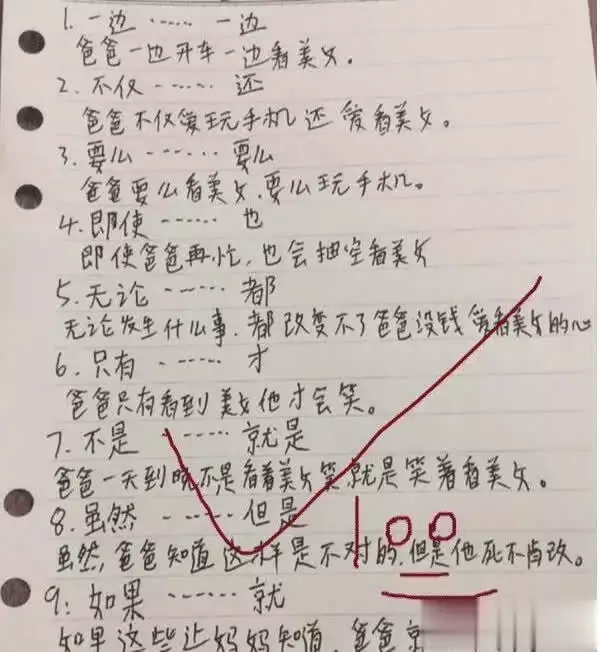 1. 一边 …… 一边
爸爸一边开车一边看美女.
2. 不仅 …… 还
爸爸不仅爱玩手机还爱看美女。
3. 要么 …… 要么
爸爸要么看美女.要么玩手机。
4. 即使 …… 也
即使爸爸再忙,也会抽空看美女
5. 无论 …… 都
无论发生什么事.都改变不了爸爸没钱爱看美女的心
6. 只有 …… 才
爸爸只有看到美女他才会笑。
7. 不是 …… 就是
爸爸一天到晚不是看着美女笑就是笑着看美女。
8. 虽然 …… 但是
虽然,爸爸知道这样是不对的.但是他死不肯改。
100
9: 如果 …… 就
如果这些让妈妈知道 爸爸